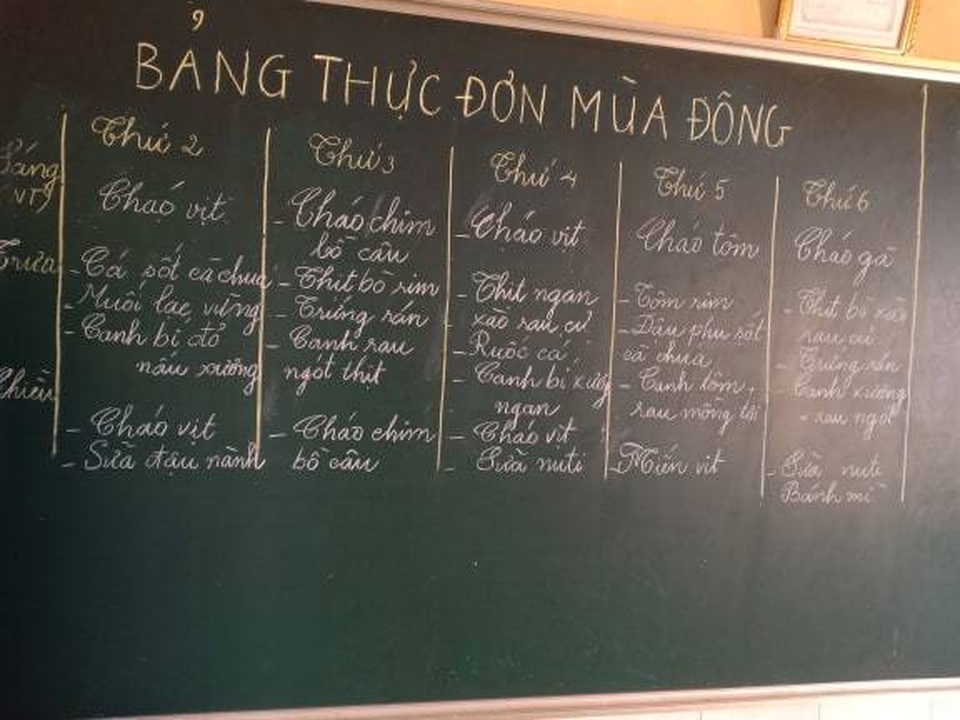 BẢNG THỰC ĐƠN MÙA ĐÔNG
Sáng
(VT)
Trưa
Chiều
Thứ 2
Cháo vịt
- Cá sốt cà chua
- Muối lạc vừng
- Canh bí đỏ
nấu xương
- Cháo vịt
- Sữa đậu nành
Thứ 3
- Cháo chim
bồ câu
- Thịt bò rim
- Trứng rán
- Canh rau
ngót thịt
- Cháo chim
bồ câu
Thứ 4
- Cháo vịt
- Thịt ngan
xào rau củ
- Ruốc cá
- Canh bí xương
ngan
- Cháo vịt
- Sữa nuti
Thứ 5
Cháo tôm
- Tôm rim
- Đậu phụ sốt
cà chua
- Canh tôm
rau mồng tơi
- Miến vịt
Thứ 6
Cháo gà
- Thịt bò xào
rau củ
- Trứng rán
- Canh xương
rau ngót
- Sữa nuti
Bánh mì